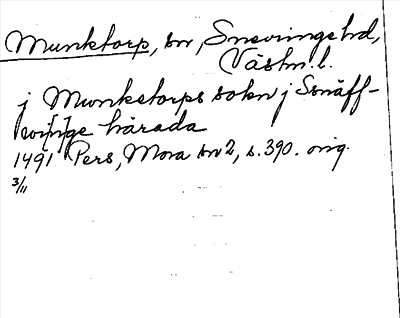 Munktorp, sn, Snevringe hd,
Västm. l.
j Mwnketorps sokn j Snäff-
wi[n]ge härada
1491 Pers, Mora sn 2, s. 390. orig.
3/11